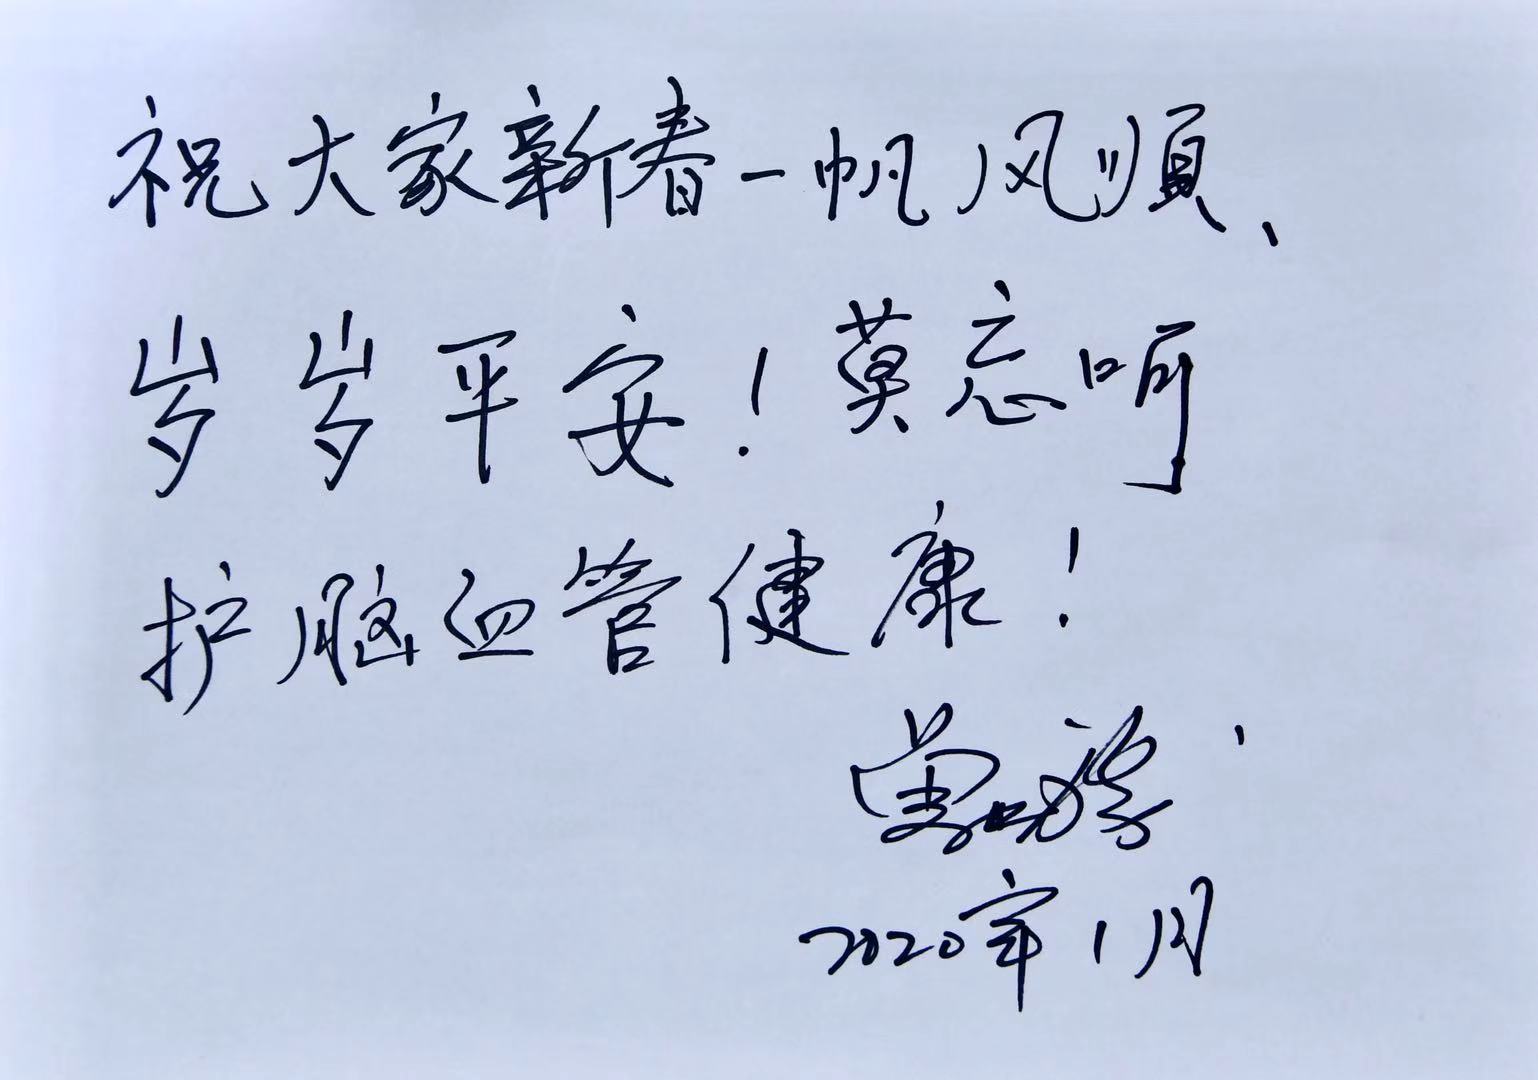 祝大家新春一帆风順、
岁岁平安！莫忘呵
护脑血管健康！
2020年1月